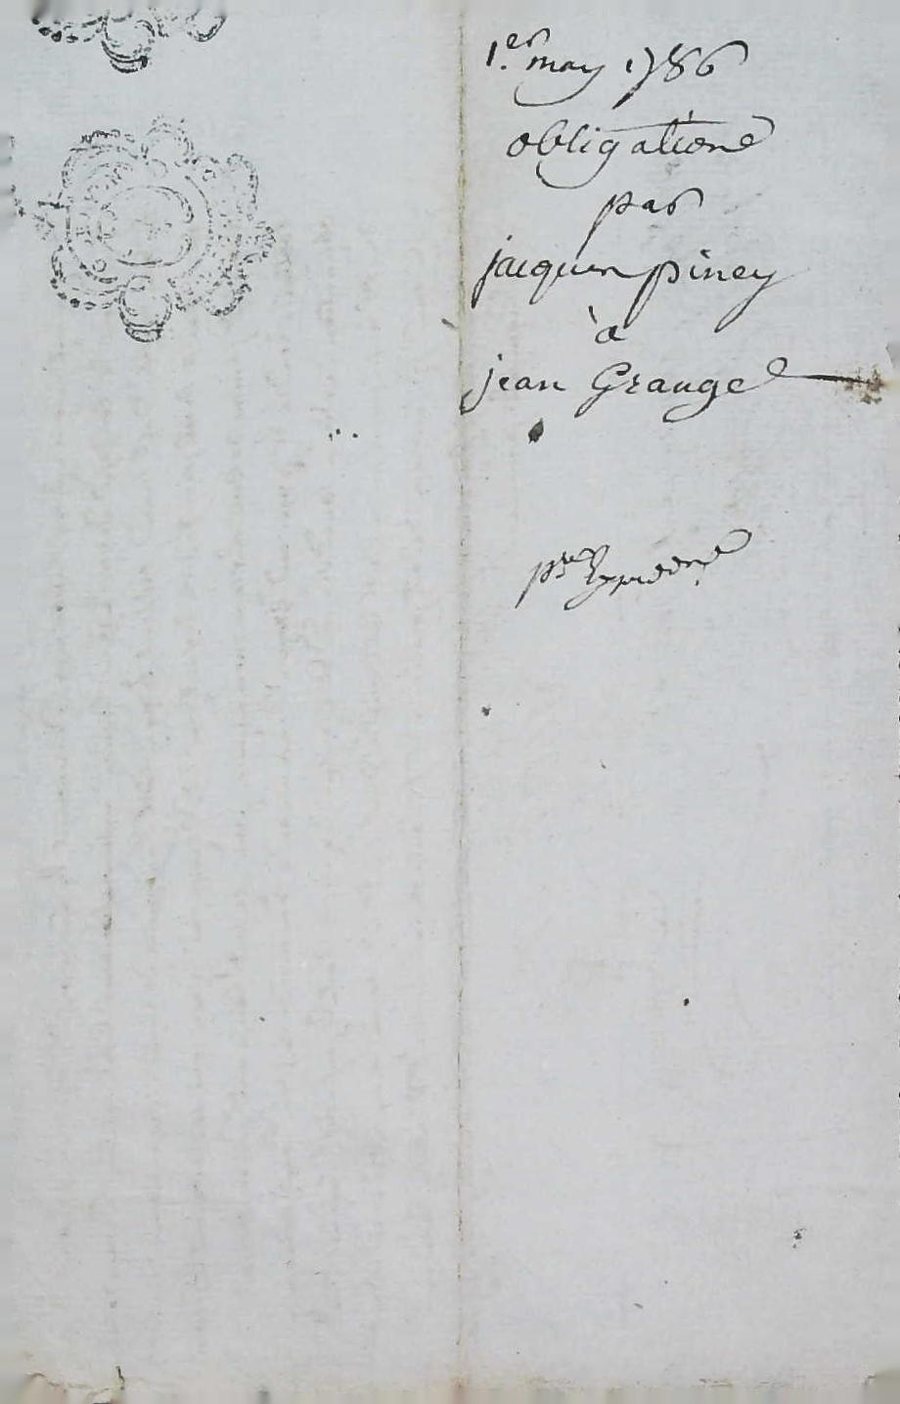 1.er may 1786
obligation
par
jacques piney
à
jean Grange
pre Expedition